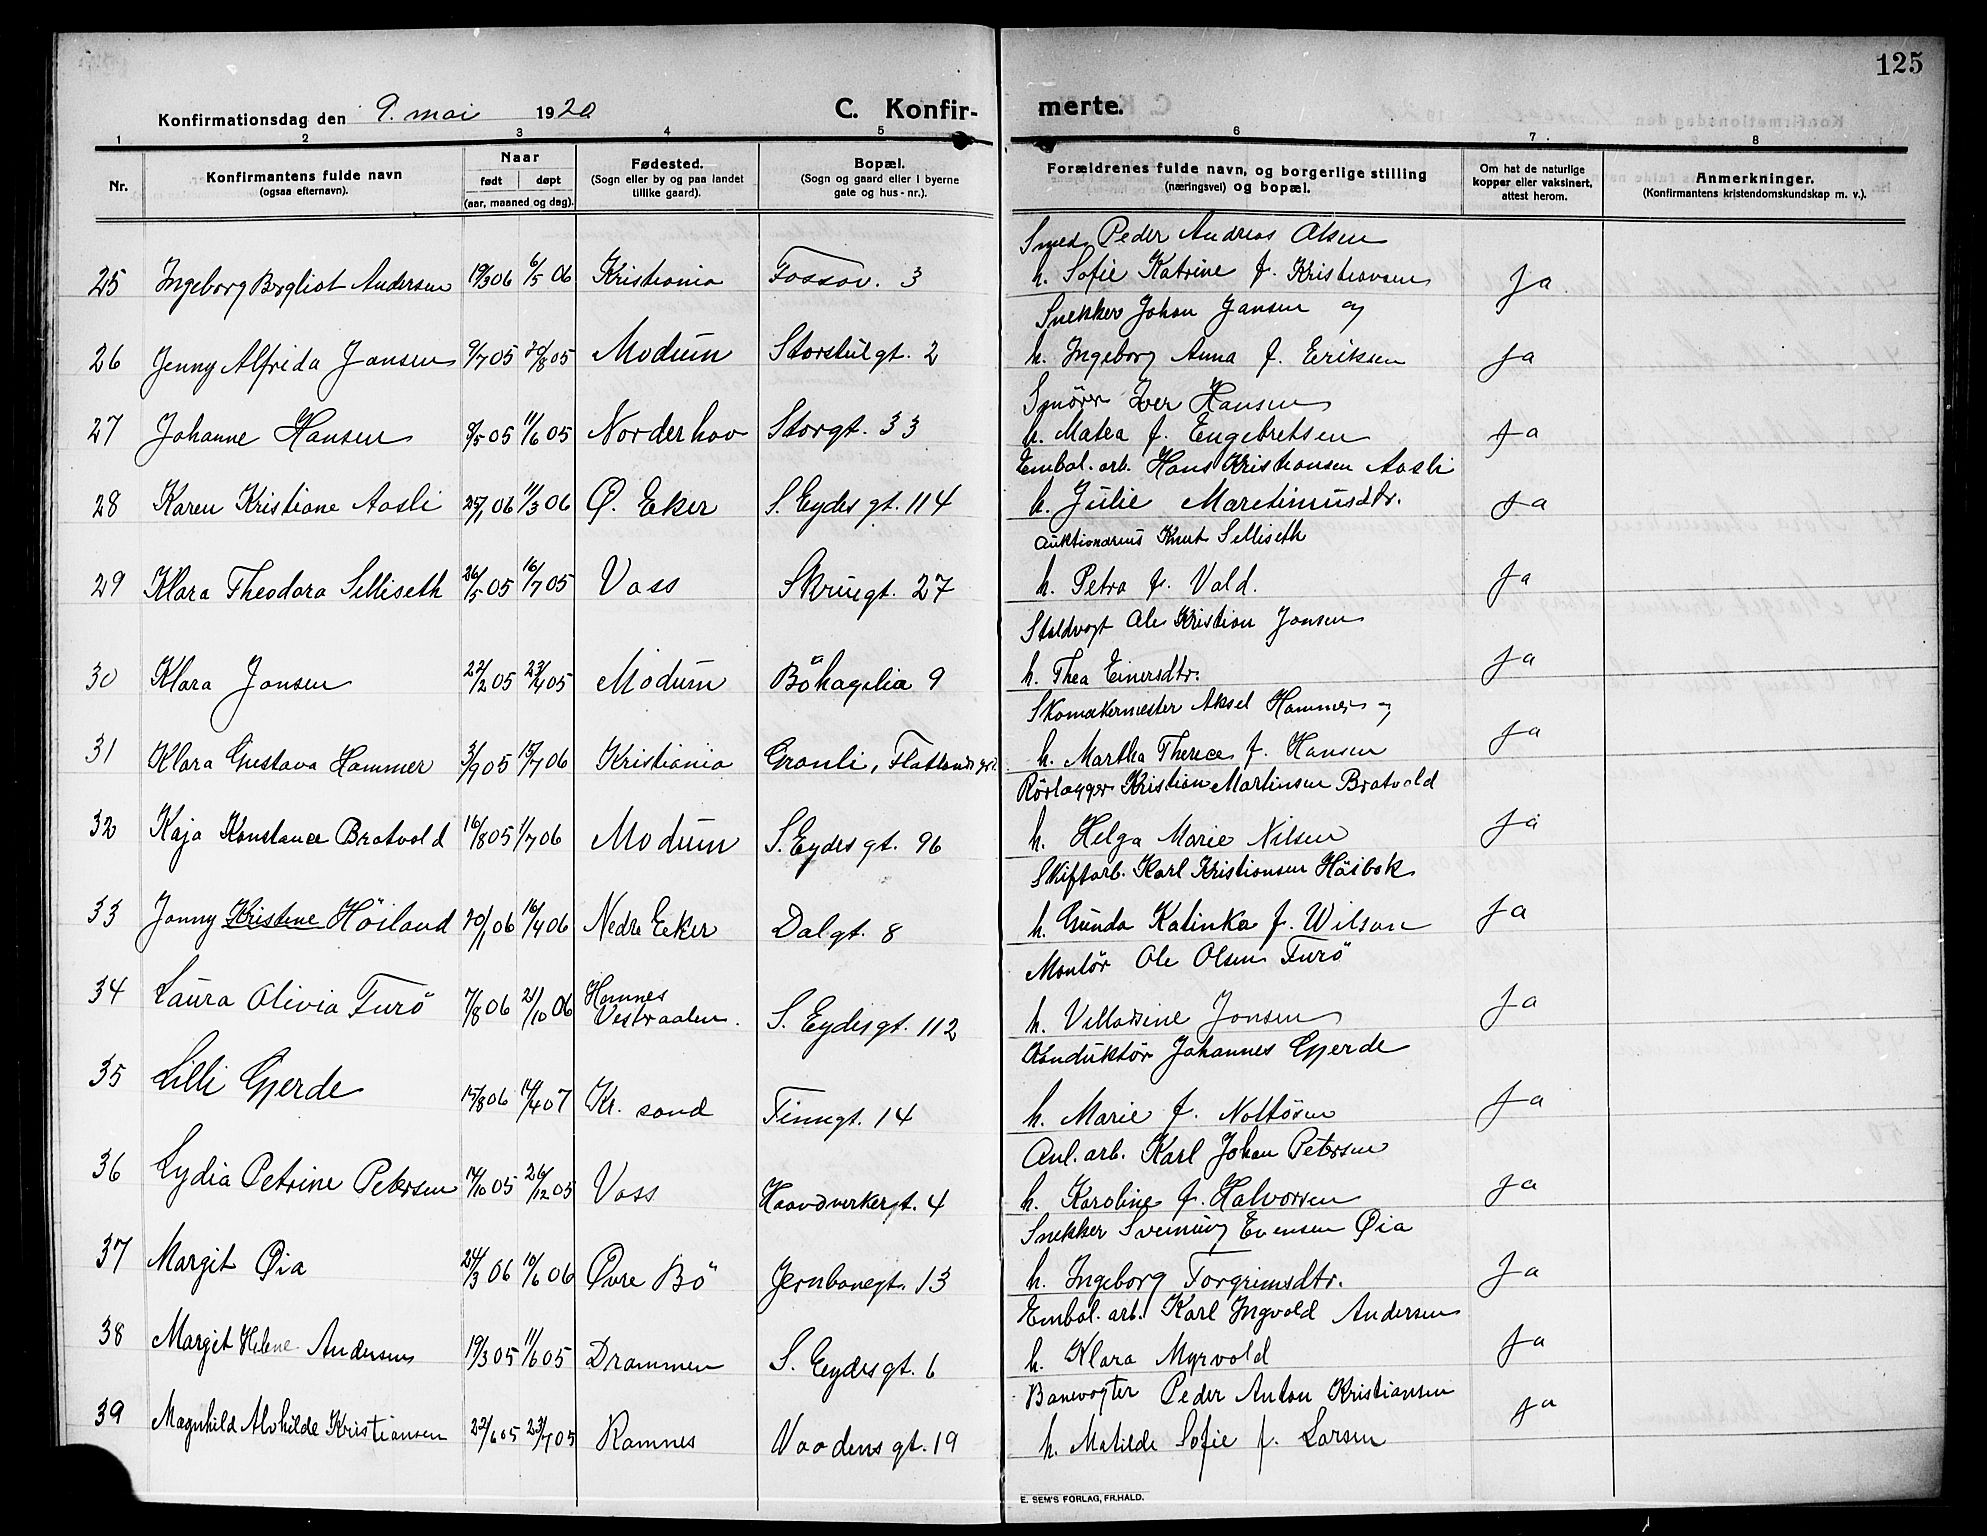 125
Konfirmationsdag den 9. mai 1920 C. Konfirmerte.
1 2 3 4 5 6 7 8
Nr.
Konfirmantens fulde navn
(ogsaa efternavn).
Naar
født døpt
(aar, maaned og dag).
Fødested.
(Sogn eller by og paa landet
tillike gaard).
Bopæl.
(Sogn og gaard eller i byerne
gate og hus-nr.).
Forældrenes fulde navn, og borgerlige stilling
(næringsvei) og bopæl.
Om hat de naturlige
kopper eller vaksinert,
attest herom.
Anmerkninger.
(Konfirmantens kristendomskundskap m. v.).
Smed Peder Andreas Olsen
25 Ingeborg Bergliot Andersen 19/3 06 6/5 06 Kristiania Fossov. 3 h. Sofie Katrine f. Kristiansen Ja
Snekker Johan Jansen og
26 Jenny Alfrida Jansen 9/7 05 20/8 05 Modum Storstulgt. 2 h. Ingeborg Anna f. Eriksen Ja
Smörer Iver Hansen
27 Johanne Hansen 8/5 05 11/6 05 Norderhov Storgt. 33 h. Matea f. Engebretsen Ja
Embal. arb. Hans Kristiansen Aasli
28 Karen Kristiane Aasli 25/1 06 11/3 06 Ø. Eker S. Eydes gt. 114 h. Julie Maretimusdtr. Ja
Auktionarius Knut Selliseth
29 Klara Theodora Selliseth 26/5 05 16/7 05 Voss Skruegt. 27 h. Petra f. Vald. Ja
Staldvogt Ole Kristian Jansen
30 Klara Jansen 22/2 05 23/4 05 Modum Böhagilia 9 h. Thea Einersdtr. Ja
Skomakermester Aksel Hammer og
31 Klara Gustava Hammer 3/9 05 15/7 06 Kristiania Grønli, Flatlands h. Martha Therece f. Hansen Ja
Rörlægger Kristian Martinsen Bratvold
32 Kaja Konstance Bratvold 16/8 05 1/7 06 Modum S. Eydes gt. 96 h. Helga Marie Nilsen Ja
Skiftarb. Karl Kristiansen Höibak
33 Jonny Kristine Höiland 20/1 06 16/4 06 Nedre Eeker Dalgt. 8 h. Gunda Katinka f. Wilson Ja
Montör Ole Olsen Turö
34 Laura Olivia Turö 7/8 06 21/10 06 Hamnes
Vestraalen. S. Eydes gt. 112 h. Villadsine Jansen Ja
Konduktör Johannes Gjerde
35 Lilli Gjerde 15/8 06 14/4 07 Kr. sand Tinngt. 14 h. Marie f. Nottösen Ja
Anl. arb. Karl Johan Petersen
36 Lydia Petrine Petersen 14/10 05 26/12 05 Voss Haandverkergt. 4 h. Karoline f. Halvorsen Ja
Snekker Sveinung Evensen Øia
37 Margit Øia 24/3 06 10/6 06 Øvre Bö Jernbanegt. 13 h. Ingeborg Torgrimsdtr. Ja
Embal. arb. Karl Ingvald Andersen
38 Margit Helene Andersen 19/3 05 11/6 05 Drammen S. Eydesgt. 6 h. Klara Myrvold Ja
Banevogter Peder Anton Kristiansen
39 Magnhild Alvhilde Kristiansen 22/6 05 23/7 05 Ramnes Vaadens gt. 19 h. Matilde Sofie f. Larsen Ja
E. SEM'S FORLAG, FR.HALD.